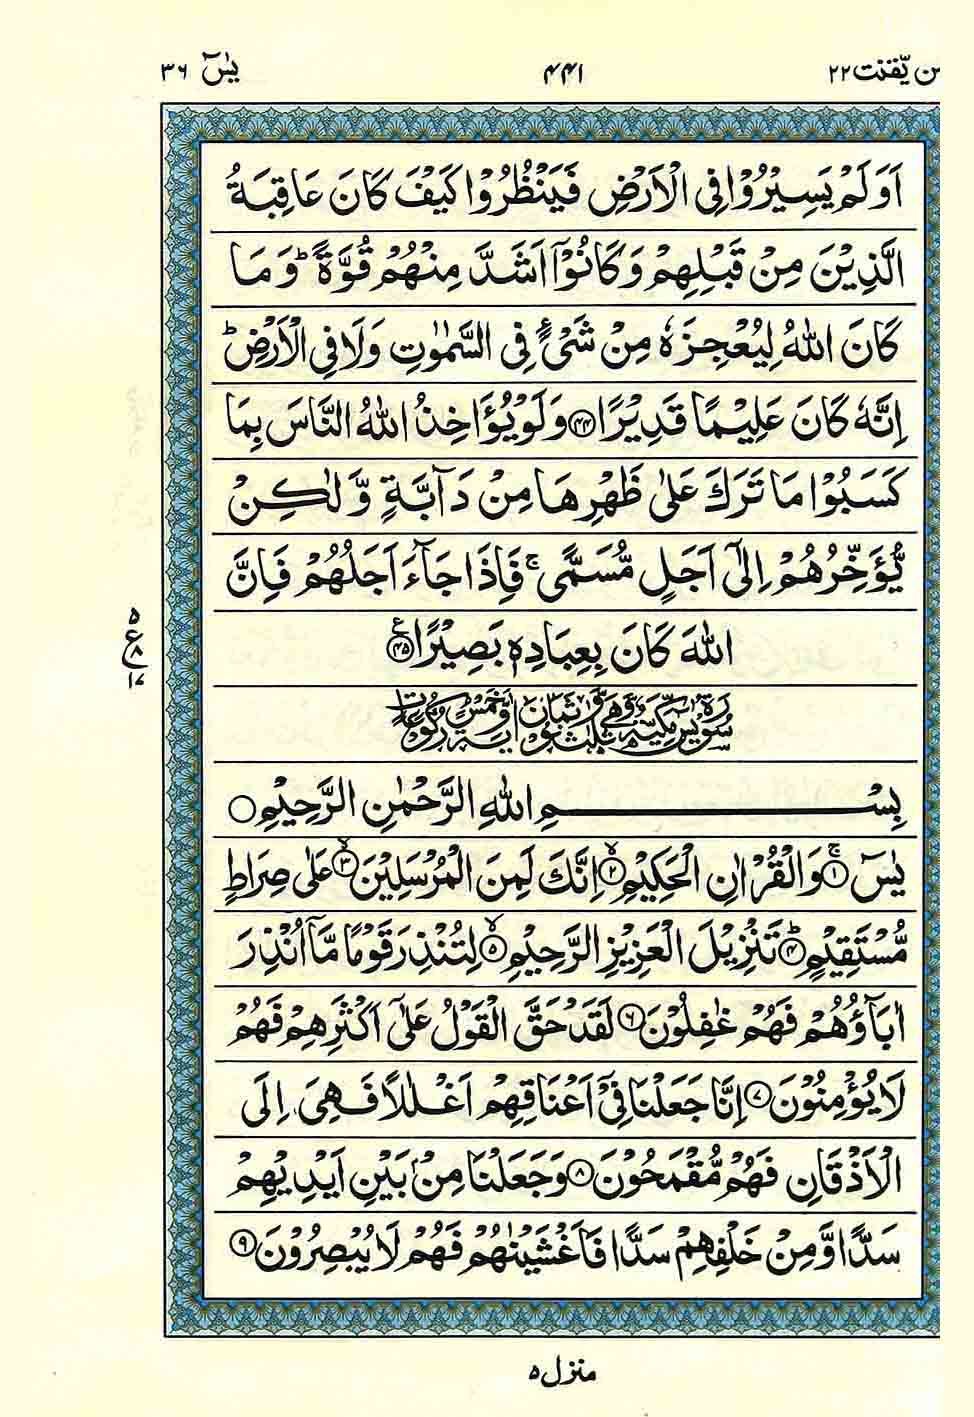 یٰسٓ ۳۶
۴۴۱
من یّقنت ۲۲
اَوَلَمْ یَسِیْرُوْا فِی الْاَرْضِ فَیَنْظُرُوْا كَیْفَ كَانَ عَاقِبَةُ
الَّذِیْنَ مِنْ قَبْلِهِمْ وَكَانُوْۤا اَشَدَّ مِنْهُمْ قُوَّةً ؕ وَمَا
كَانَ اللّٰهُ لِیُعْجِزَهٗ مِنْ شَیْءٍ فِی السَّمٰوٰتِ وَلَا فِی الْاَرْضِ ؕ
اِنَّهٗ كَانَ عَلِیْمًا قَدِیْرًا ۴۴ وَلَوْ یُؤَاخِذُ اللّٰهُ النَّاسَ بِمَا
كَسَبُوْا مَا تَرَكَ عَلٰی ظَهْرِهَا مِنْ دَآبَّةٍ وَّلٰكِنْ
یُّؤَخِّرُهُمْ اِلٰۤی اَجَلٍ مُّسَمًّی ۚ فَاِذَا جَآءَ اَجَلُهُمْ فَاِنَّ
اللّٰهَ كَانَ بِعِبَادِهٖ بَصِیْرًا ۴۵ ع
۵
ع ۸
۱۷
سُوْرَةُ یٰسٓ مَكِّیَّةٌ وَّهِیَ ثَلٰثٌ وَّثَمَانُوْنَ اٰیَةً وَّخَمْسُ رُكُوْعَاتٍ
بِسْمِ اللّٰهِ الرَّحْمٰنِ الرَّحِیْمِ ○
یٰسٓ ۱ ۚ وَالْقُرْاٰنِ الْحَكِیْمِ ۲ ۙ اِنَّكَ لَمِنَ الْمُرْسَلِیْنَ ۳ ۙ عَلٰی صِرَاطٍ
مُّسْتَقِیْمٍ ۴ ؕ تَنْزِیْلَ الْعَزِیْزِ الرَّحِیْمِ ۵ ۙ لِتُنْذِرَ قَوْمًا مَّاۤ اُنْذِرَ
اٰبَآؤُهُمْ فَهُمْ غٰفِلُوْنَ ۶ لَقَدْ حَقَّ الْقَوْلُ عَلٰۤی اَكْثَرِهِمْ فَهُمْ
لَا یُؤْمِنُوْنَ ۷ اِنَّا جَعَلْنَا فِیْۤ اَعْنَاقِهِمْ اَغْلٰلًا فَهِیَ اِلَی
الْاَذْقَانِ فَهُمْ مُّقْمَحُوْنَ ۸ وَجَعَلْنَا مِنْۢ بَیْنِ اَیْدِیْهِمْ
سَدًّا وَّمِنْ خَلْفِهِمْ سَدًّا فَاَغْشَیْنٰهُمْ فَهُمْ لَا یُبْصِرُوْنَ ۹
منزل ۵